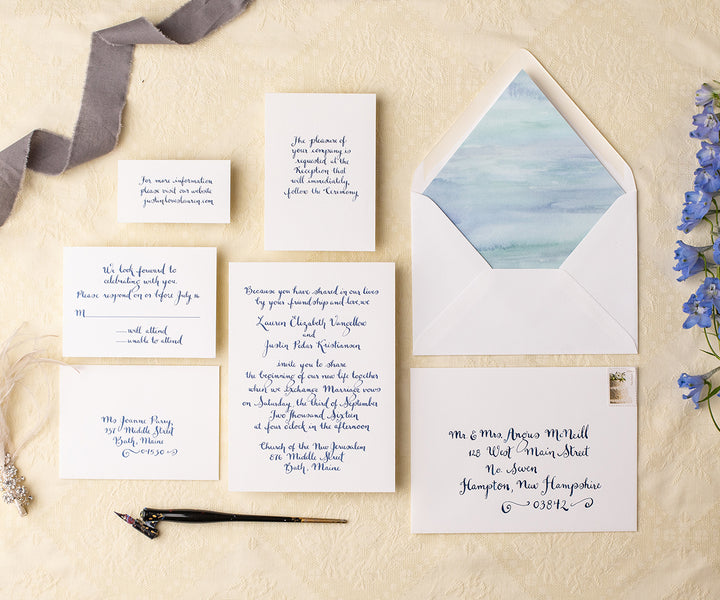 For more information
please visit our website
justinloveslauren.com
The pleasure of
your company is
requested at the
Reception that
will immediately
follow the Ceremony
We look forward to
celebrating with you.
Please respond on or before July 16
M
will attend
unable to attend
Because you have shared in our lives
by your friendship and love, we
Lauren Elizabeth Vangellow
and
Justin Peter Kristiansen
invite you to share
the beginning of our new life together
when we Exchange Marriage vows
on Saturday, the third of September
Two Thousand Sixteen
at four o'clock in the afternoon
Church of the New Jerusalem
876 Middle Street
Bath, Maine
Ms Joanne Parry
957 Middle Street
Bath, Maine
04530
Mr. & Mrs. Angus McNeill
128 West Main Street
No. Seven
Hampton, New Hampshire
03842